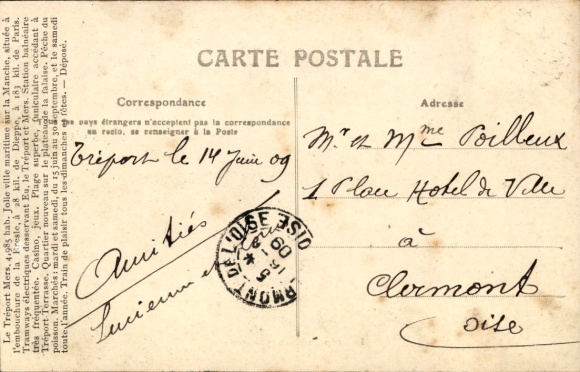 CARTE POSTALE
Correspondance
pays étrangers n'acceptent pas la correspondance
au recto, se renseigner à la Poste
Tréport le 14 Juin 09
Amitiés
Lucienne et
Adresse
Mr et Mme Poilleux
1 Place Hotel de Ville
à
Clermont
Oise
RMONT DE L'OISE OISE
15
09
Le Tréport Mers, 4.985 hab. Jolie ville maritime sur la Manche, située à
l'embouchure de la Bresle, à 28 kil. de Dieppe, à 183 kil. de Paris.
Tramways électriques desservant Eu, le Tréport et Mers. Station balnéaire
très fréquentée. Casino, jeux. Plage superbe, funiculaire accédant à
Tréport-Terrasse. Quartier nouveau sur le plateau de la falaise. Pêche du
poisson. Marchés: mardi et samedi, du 15 juin au 30 septembre, et le samedi
toute l'année. Train de plaisir tous les dimanches et fêtes. — Déposé.